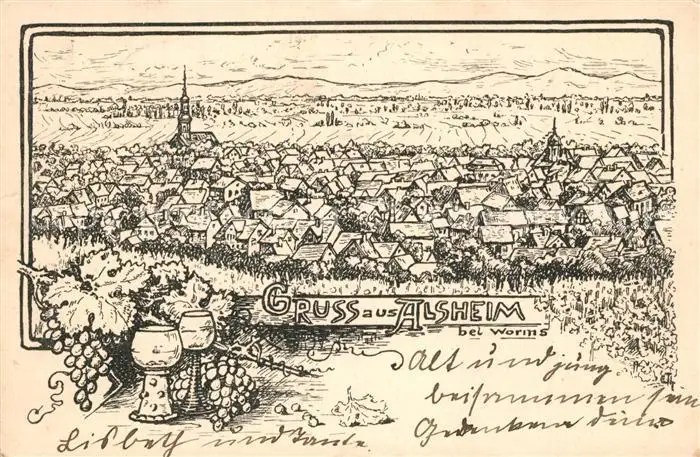 GRUSS aus ALSHEIM
bei Worms
Alt und jung
beisammen sein
Gedenken dein
Lisbeth und Tante